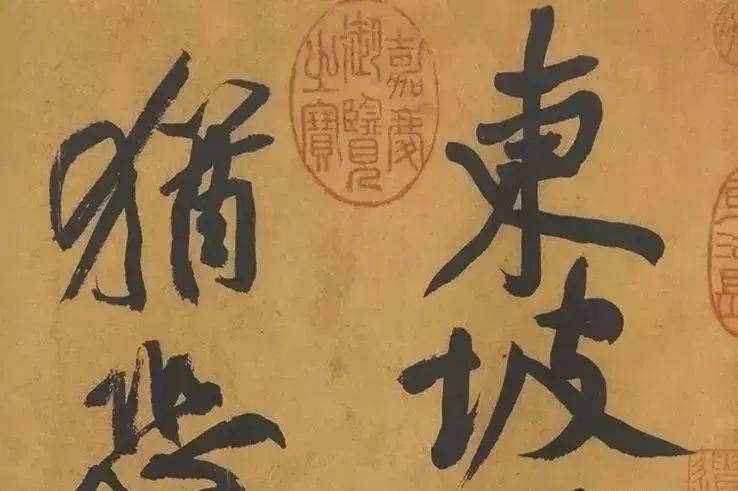 東坡
猶
嘉慶
御覽
之寶